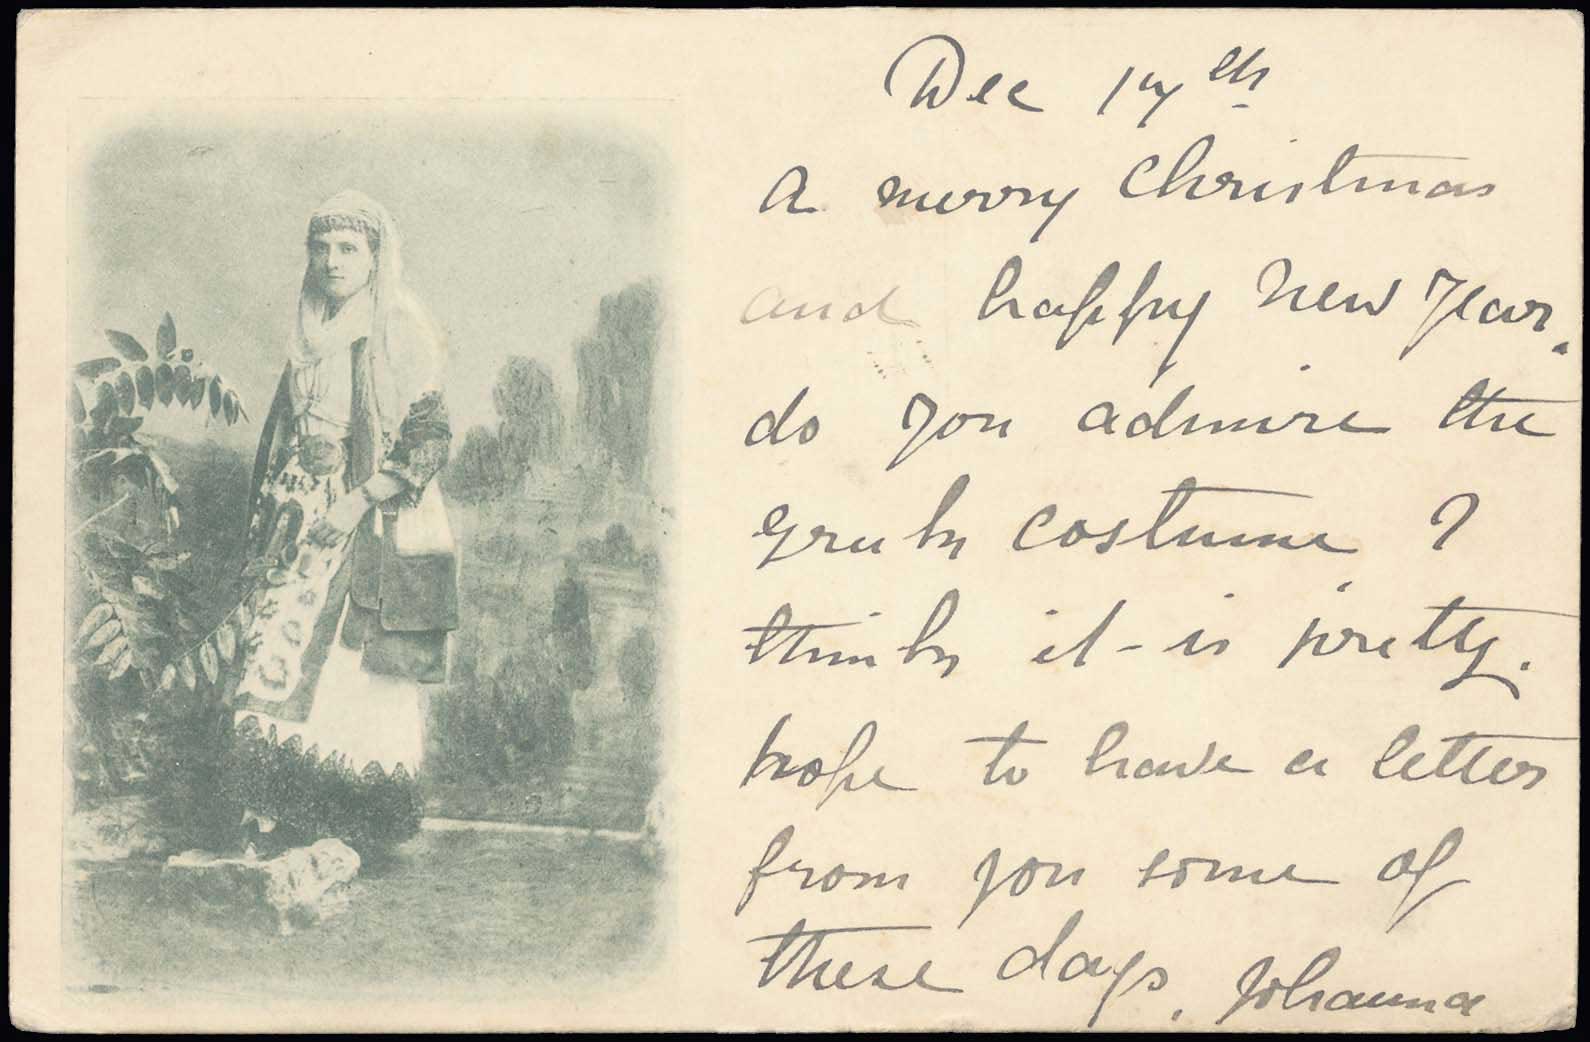 Dec 17th
A merry Christmas
and happy New Year.
do you admire the
greek costume, I
think it is pretty.
hope to have a letter
from you some of
these days. Johanna